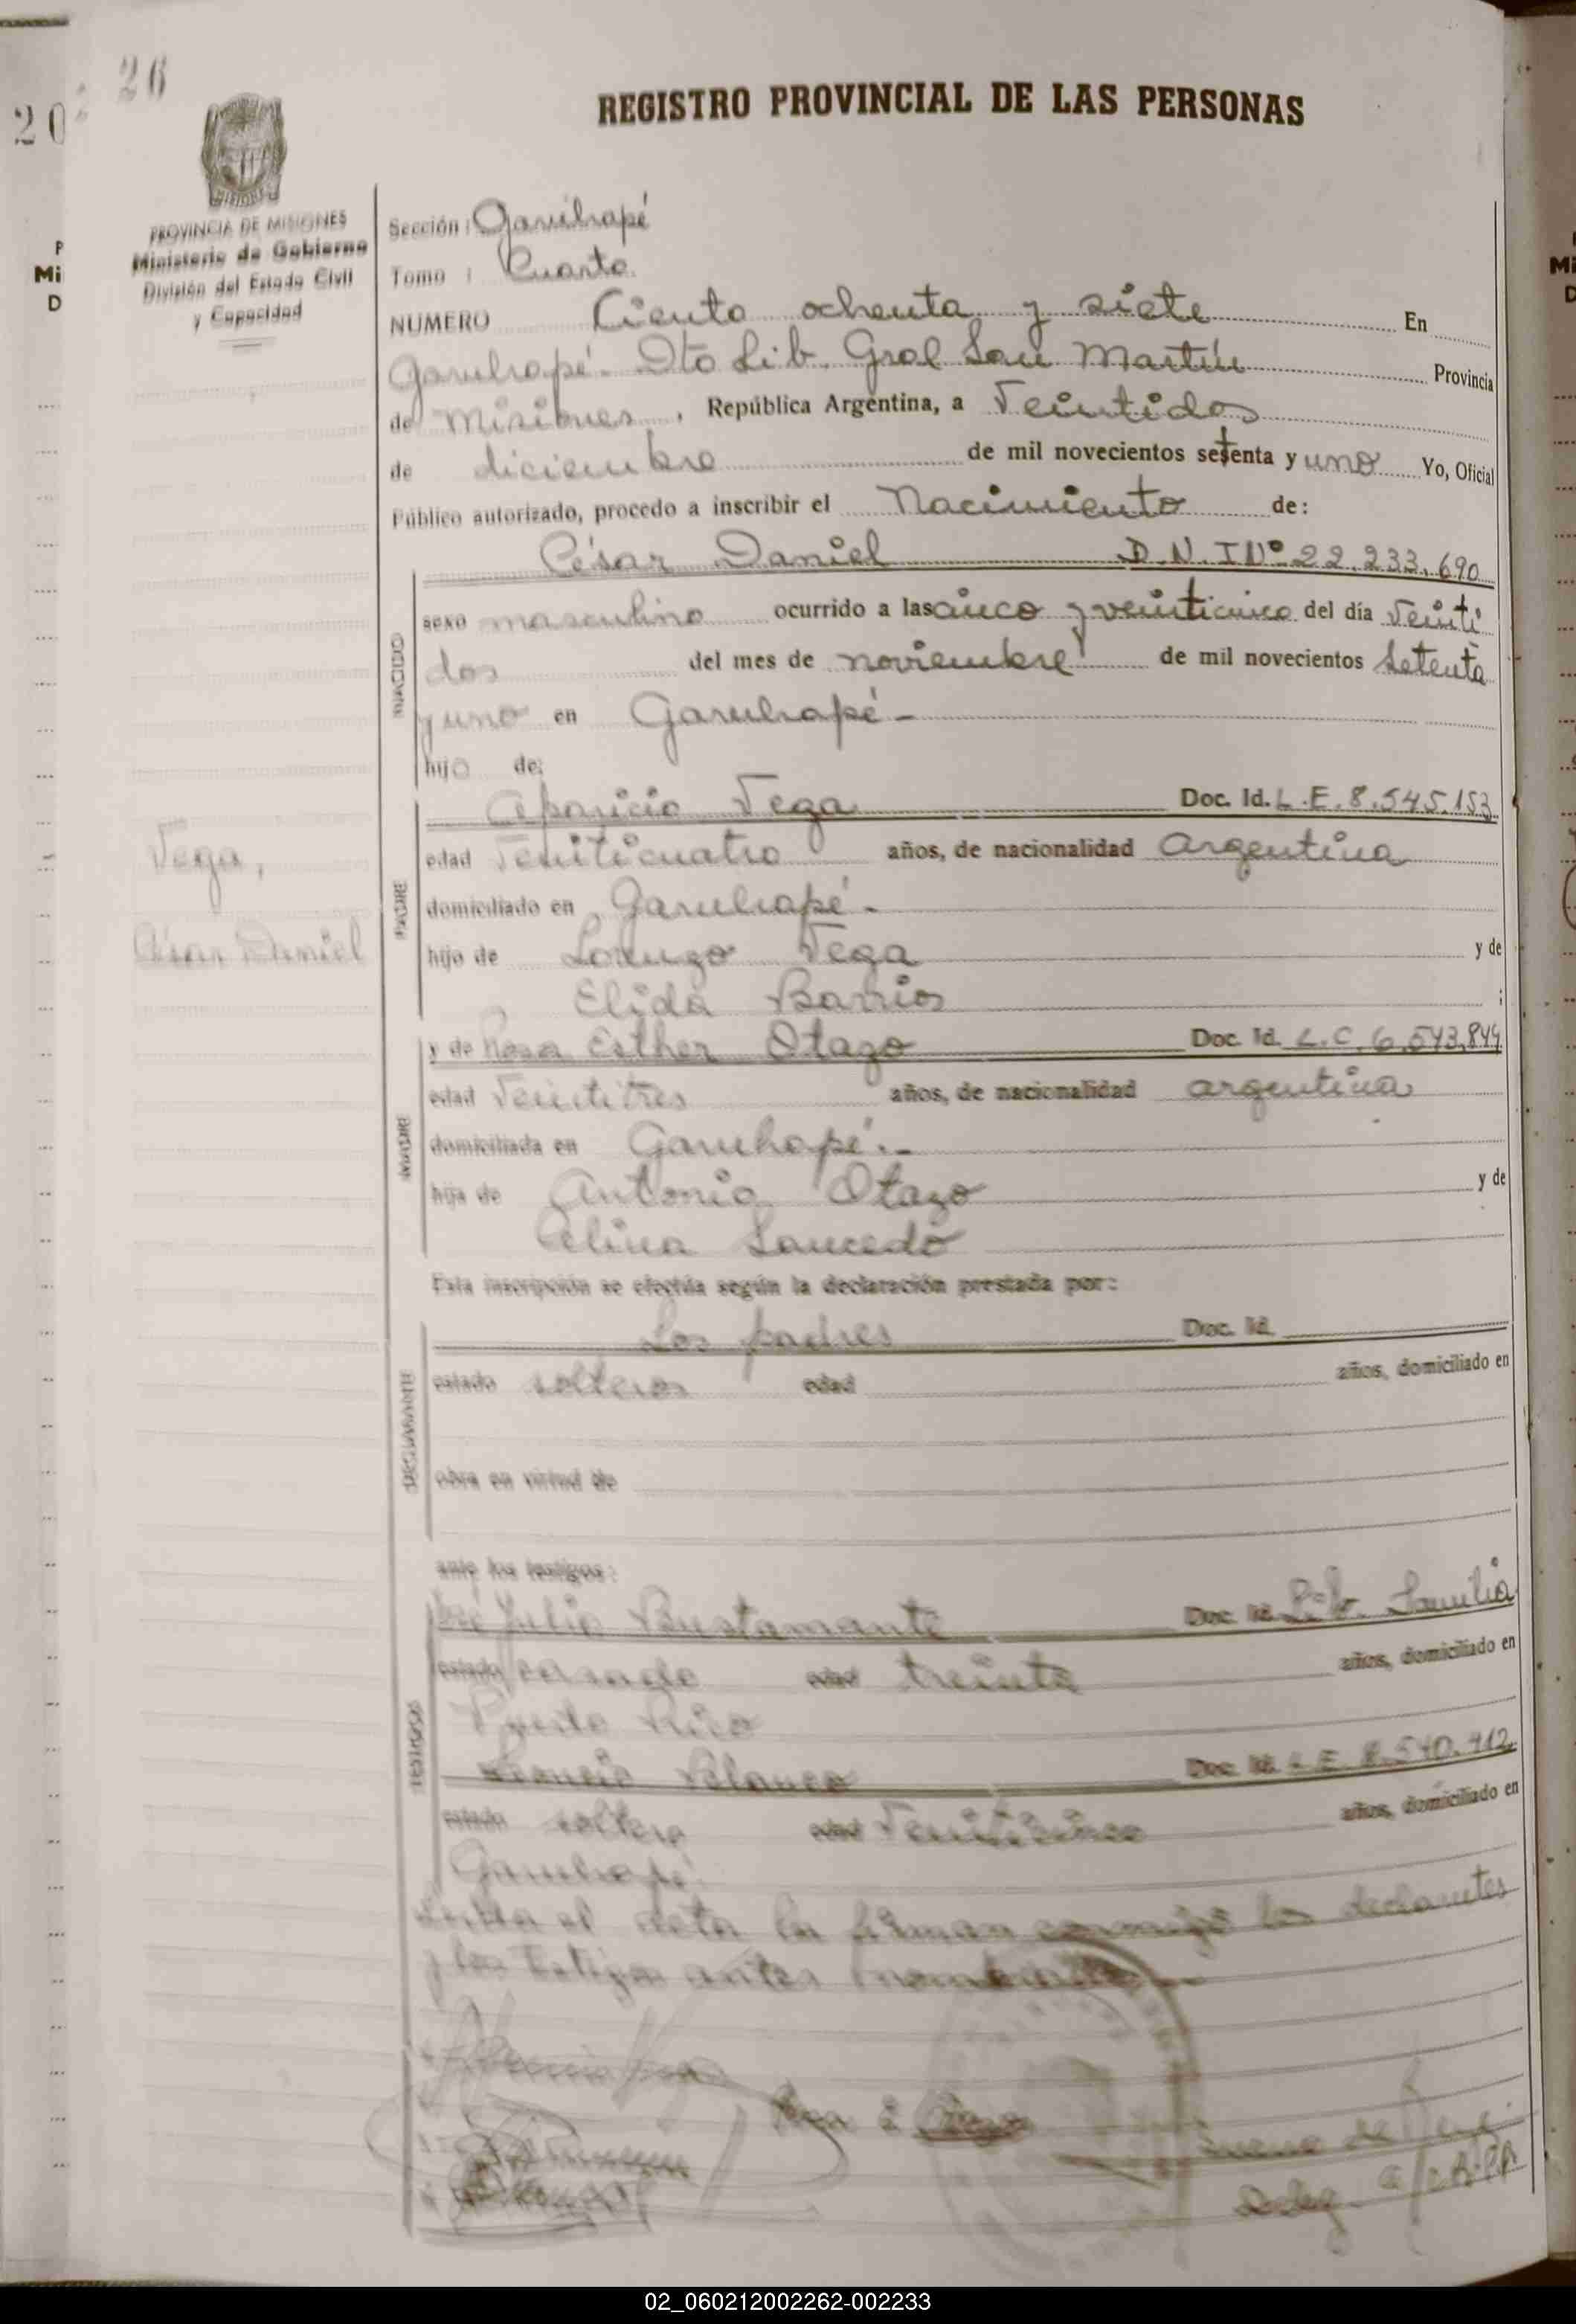 26
20
REGISTRO PROVINCIAL DE LAS PERSONAS
PROVINCIA DE MISIONES
Ministerio de Gobierno
División del Estado Civil
y Capacidad
Sección: Garuhapé
Tomo : Cuarto
NUMERO Ciento ochenta y siete En
Garuhapé. Dto Lib. Gral San Martín Provincia
de Misiones, República Argentina, a Veintidos
de diciembre de mil novecientos setenta y uno Yo, Oficial
Público autorizado, procedo a inscribir el Nacimiento de:
César Daniel D.N.I Nº 22.233.690
NACIDO
sexo masculino ocurrido a las cinco y veinticinco del día Veinti
dos del mes de noviembre de mil novecientos setenta
y uno en Garuhapé -
hijo de:
Aparicio Vega Doc. Id. L.E. 8.545.153
PADRE
edad Veinticuatro años, de nacionalidad Argentina
domiciliado en Garuhapé -
hijo de Lorenzo Vega y de
Elida Barrios ;
Vega,
César Daniel
y de Rosa Esther Otazo Doc. Id. L.C. 6.543.844
MADRE
edad Veintitres años, de nacionalidad argentina
domiciliada en Garuhapé.-
hija de Antonio Otazo y de
Celina Saucedo
Esta inscripción se efectúa según la declaración prestada por:
DECLARANTE
Los padres Doc. Id.
estado solteros edad años, domiciliado en
obra en virtud de
ante los testigos:
TESTIGOS
José Julio Bustamante Doc. Id. Lib. Familia
estado casado edad treinta años, domiciliado en
Puerto Rico
Blanco Doc. Id. L.E. 8.540.412
estado soltero edad Veinticinco años, domiciliado en
Garuhapé.
el acta la firman conmigo los declarantes
y los testigos antes nombrados
02_060212002262-002233